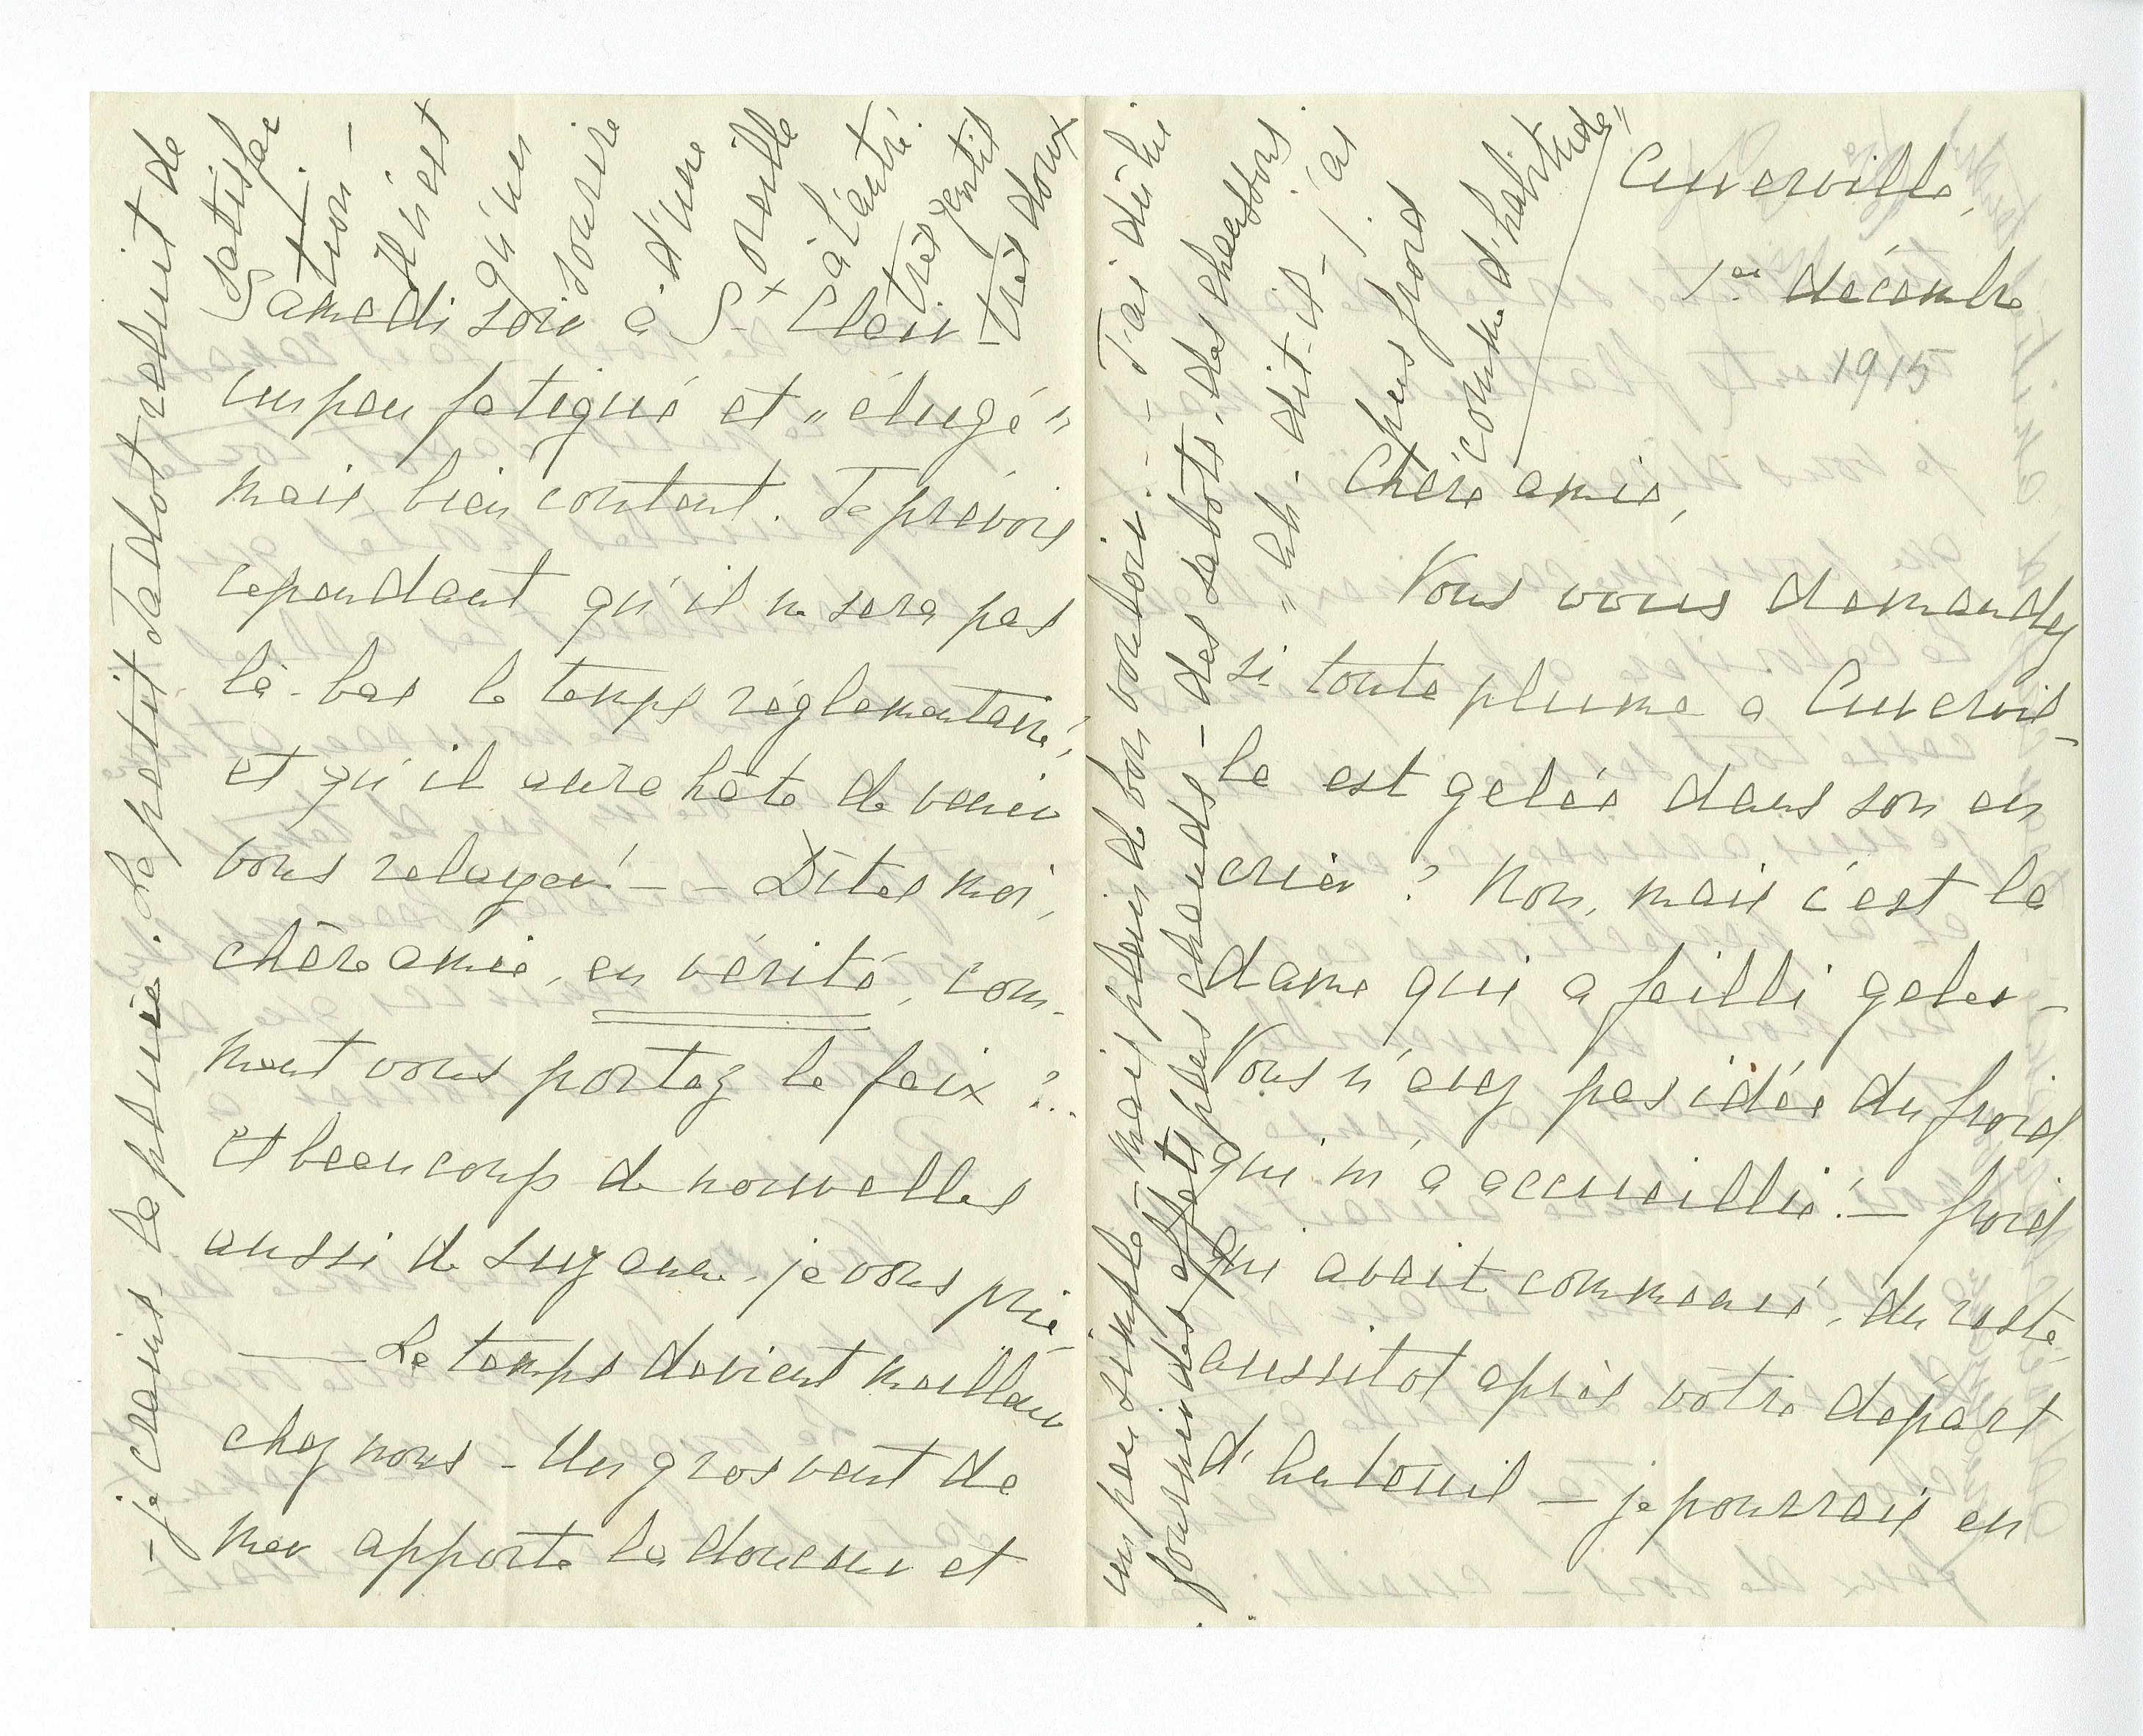 Cuverville,
1er décembre
1915
Chère amie,
Vous vous demandez
si toute plume a Cuvervil-
le est gelée dans son en
crier ? Non, mais c'est la
dame qui a failli geler –
Vous n'avez pas idée du froid
qui m'a accueillie ! – froid
qui avait commencé, du reste,
aussitot après votre départ
d'Auteuil – je pourrais en
Samedi soir à St Clair –
un peu fatigué et "élugé"
mais bien content. Je prévois
cependant qu'il ne sera pas
là-bas le temps réglementaire,
et qu'il aura hâte de venir
vous relayer ! – – Dites moi,
chère amie, en vérité, com-
ment vous portez le faix ?..
Et beaucoup de nouvelles
aussi de Suzanne, je vous prie –
— Le temps devient meilleur
chez nous – Un gros vent de
mer apporte la douceur et
– je crains, la pluie. Le petit Jadot reluit de
satisfac
tion –
Il n'est
qu'un
sourire
d'une
oreille
à l'autre.
très gentil
très doux
un peu simple – mais plein de bon vouloir. – J'ai du lui
fournir des effets plus chauds – des sabots, des chaussons
"Ah ! dit-il – j'ai
plus froid
comme d'habitude"